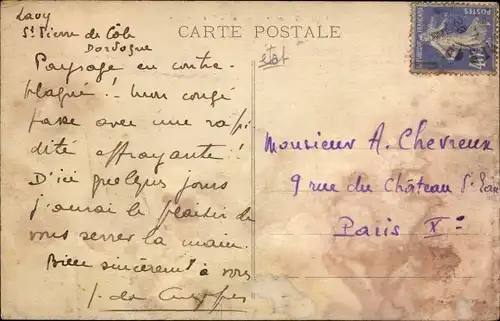 Lavy
St Pierre de Côle
Dordogne
CARTE POSTALE
POSTES
état
Paysage en contre-
blague ! Mon congé
passe avec une rapi
dité effroyante !
D'ici quelques jours
j'aurai le plaisir de
vous serrer la main.
Bien sincèrement à vous
J. de
Monsieur A. Chevreux
9 rue du Château
Paris Xe